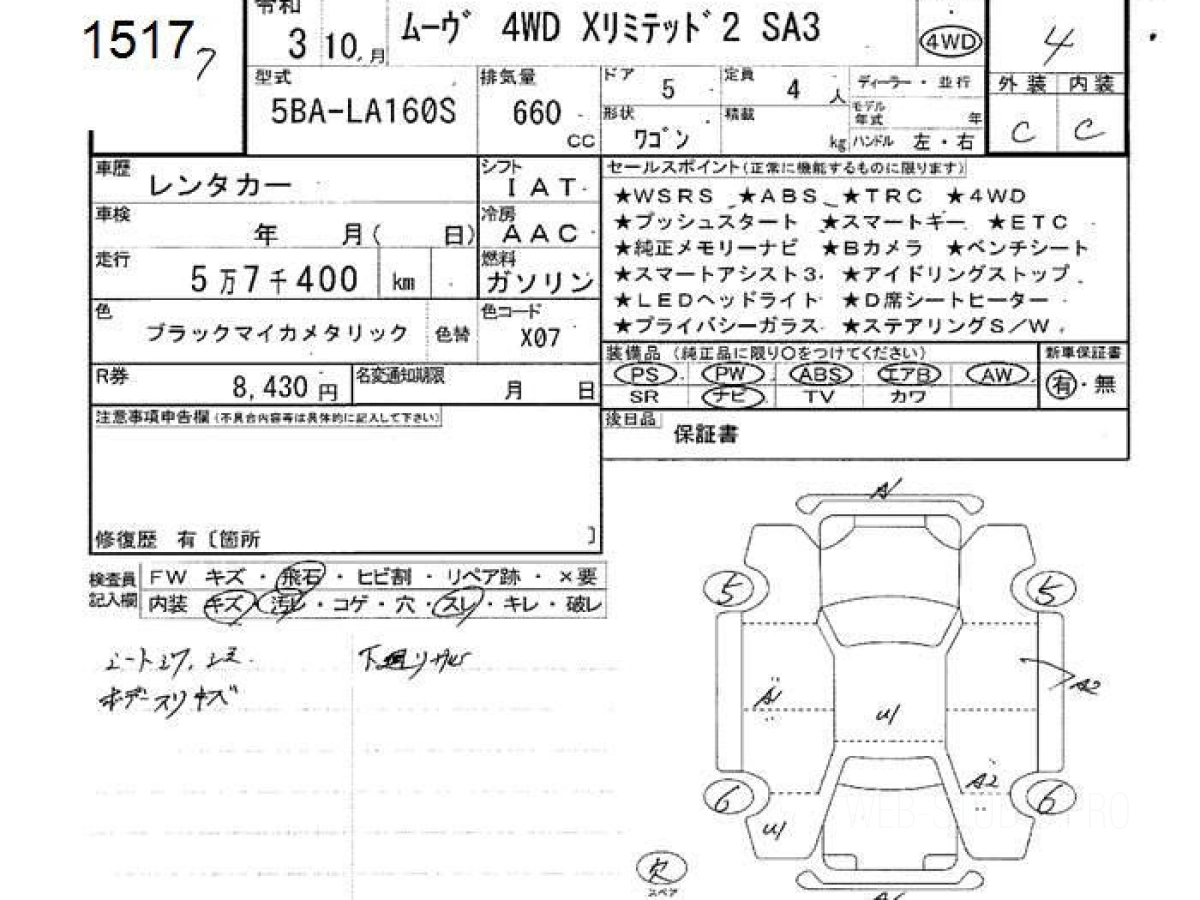 15177
令和 3 10.月
ムーヴ 4WD Xリミテッド2 SA3
4WD
4
外装 内装
C C
型式 5BA-LA160S
排気量 660 CC
ドア 5
定員 4 人
形状 ワゴン
積載 kg
ディーラー・並行
モデル年式 年
ハンドル 左・右
車歴 レンタカー
シフト IAT
車検 年 月( 日)
冷房 AAC
走行 5万7千400 km
燃料 ガソリン
色 ブラックマイカメタリック 色替
色コード X07
R券 8,430円
名変通知期限 月 日
セールスポイント(正常に機能するものに限ります)
★WSRS ★ABS ★TRC ★4WD
★プッシュスタート ★スマートキー ★ETC
★純正メモリーナビ ★Bカメラ ★ベンチシート
★スマートアシスト3 ★アイドリングストップ
★LEDヘッドライト ★D席シートヒーター
★プライバシーガラス ★ステアリングS/W
装備品 (純正品に限り○をつけてください)
新車保証書
PS PW ABS エアB AW
有・無
SR ナビ TV カワ
後日品 保証書
注意事項申告欄(不具合内容等は具体的に記入して下さい)
修復歴 有〔箇所 〕
検査員記入欄
FW キズ・飛石・ヒビ割・リペア跡・×要
内装 キズ・汚レ・コゲ・穴・スレ・キレ・破レ
シートシワ、シミ
下廻りサビ
ボデースリキズ
A1
5 5
A1
U1
A2
A2
6 6
U1
欠
スペア
WEB-STUDIO PRO